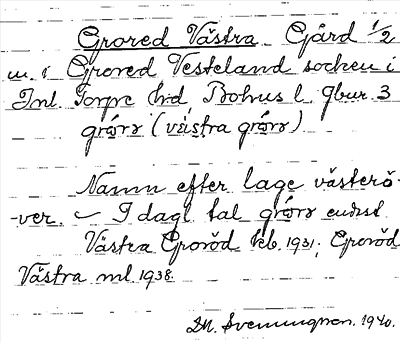 Grored Västra Gård 1/2
m. i Grored Vesteland socken i
Inl. Torpe hd, Bohus l. Gbur. 3
(västra
Namn efter läge västerö-
-ver. I dagl. tal endst
Västra Groröd kb. 1931; Groröd
Västra ml. 1938.
Svenningson. 1940.